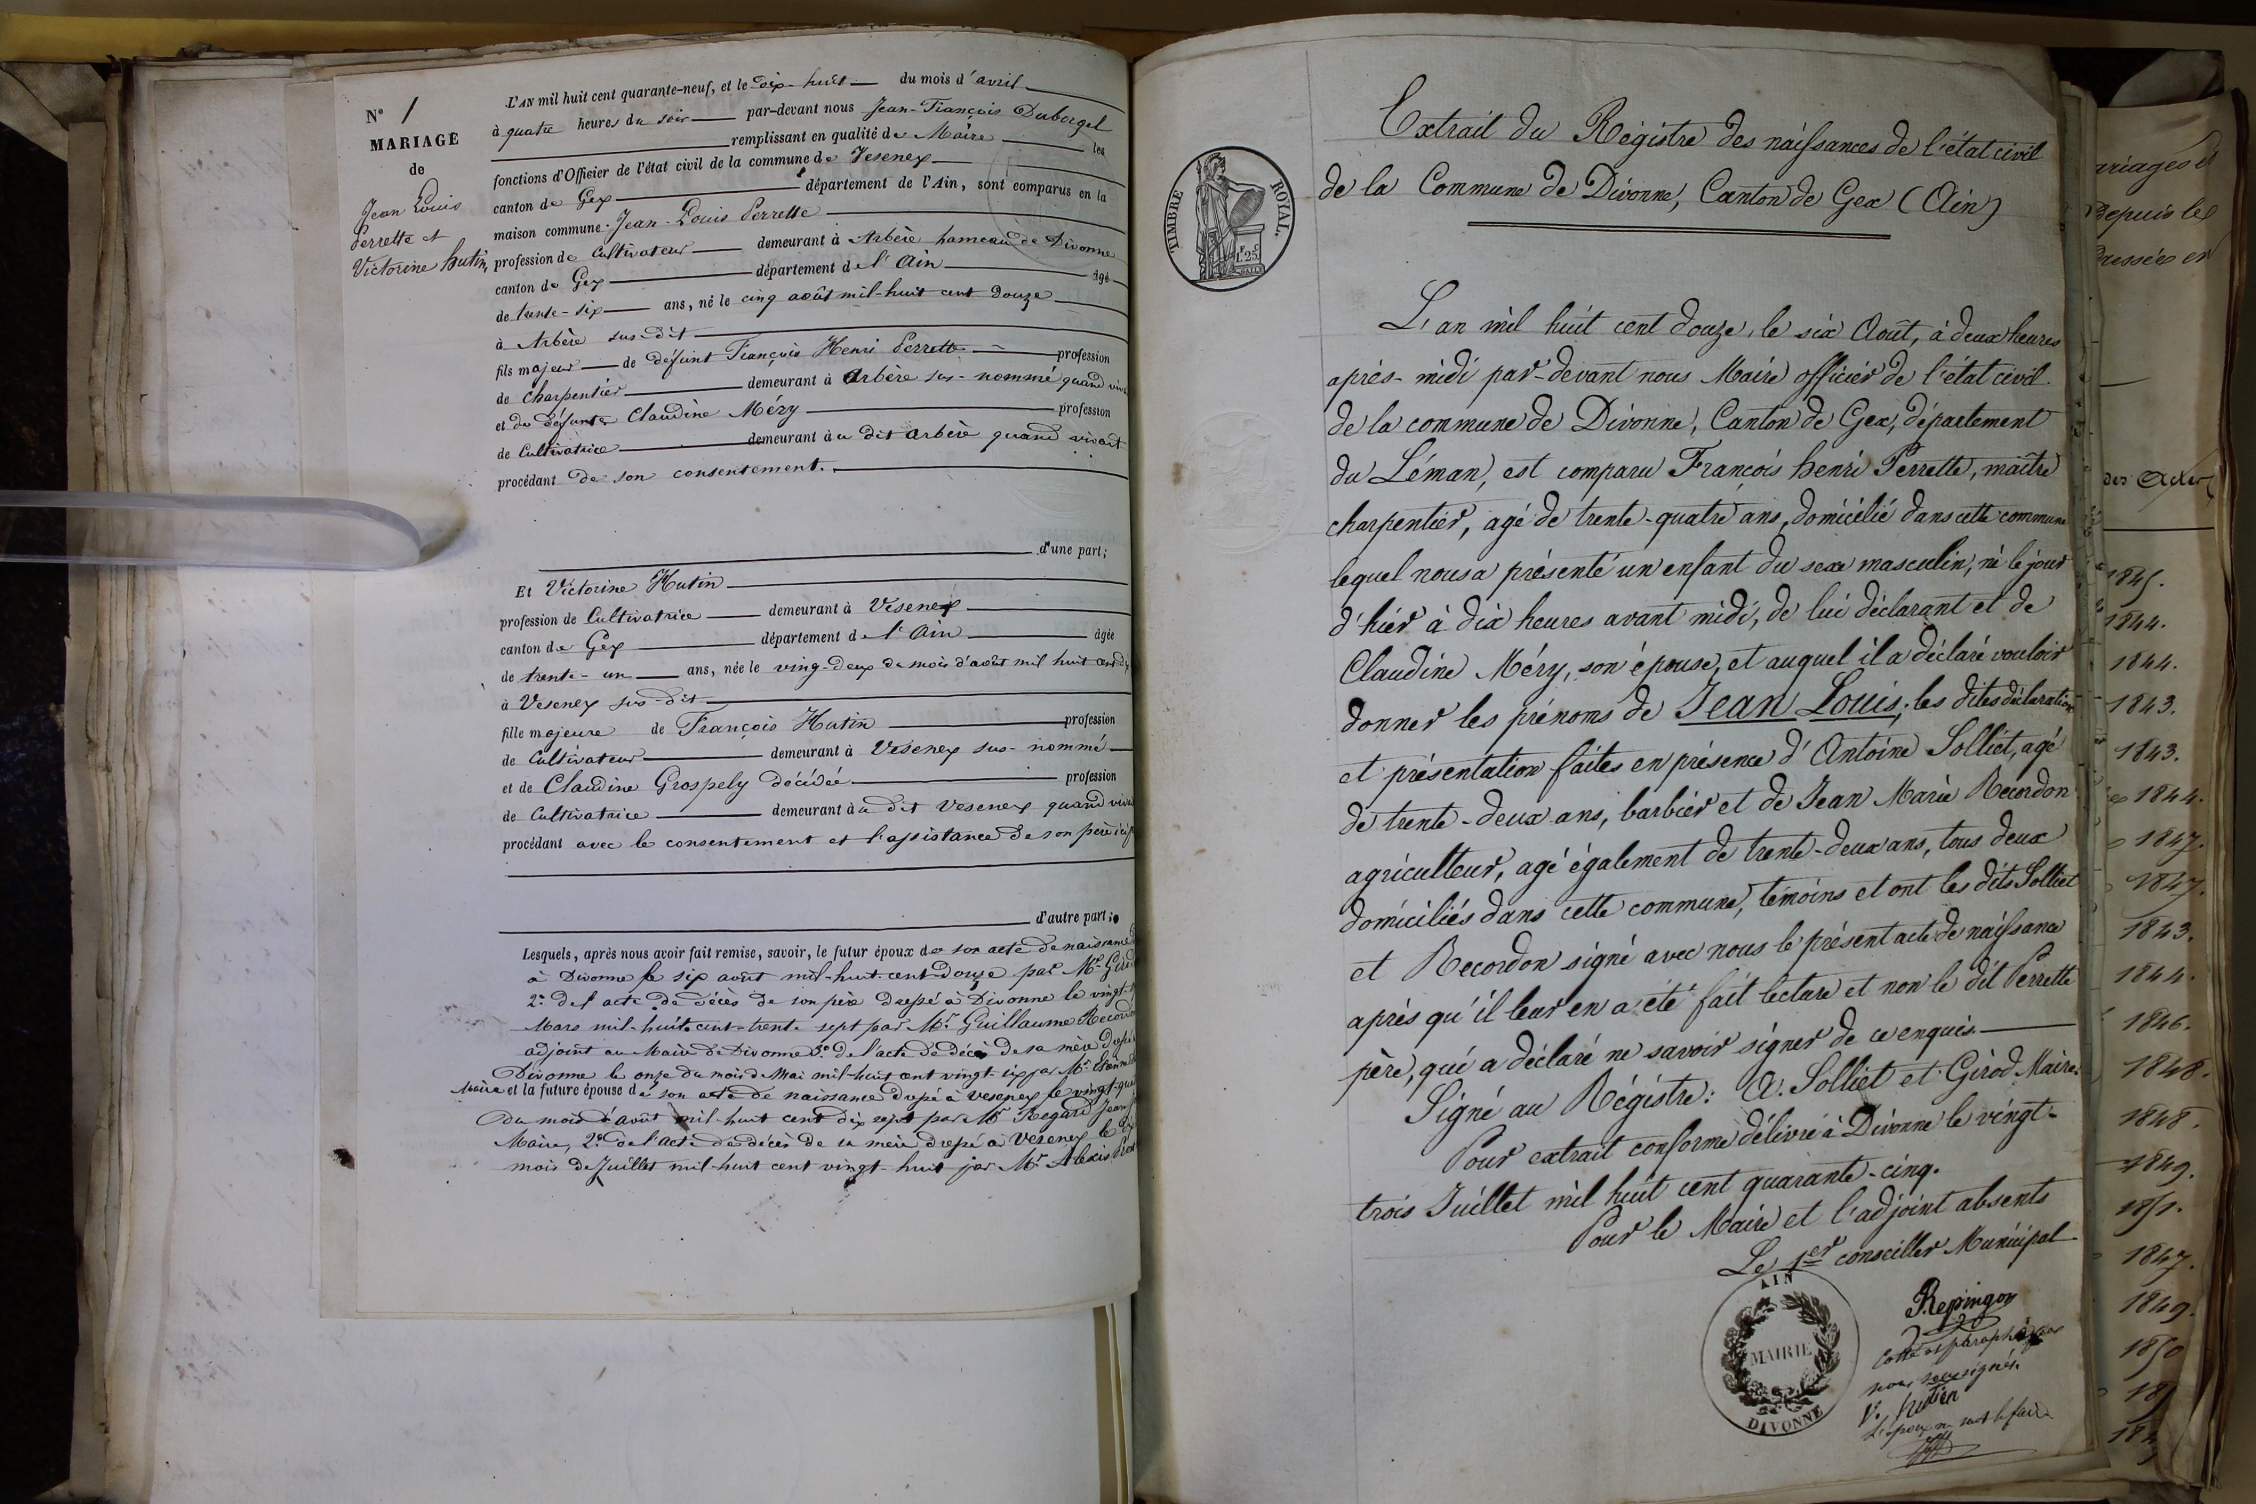 N° 1
MARIAGE
de
Jean Louis
Perrette et
Victorine hutin,
L'AN mil huit cent quarante-neuf, et le dix-huit du mois d'avril
à quatre heures du soir par-devant nous Jean-François Duborgel
remplissant en qualité de Maire les
fonctions d'Officier de l'état civil de la commune de Vesenex
canton de Gex département de l'Ain, sont comparus en la
maison commune Jean-Louis Perrette
profession de Cultivateur demeurant à Arbère hameau de Divonne
canton de Gex département de l'Ain âgé
de trente-six ans, né le cinq août mil-huit cent douze
à Arbère sus-dit
fils majeur de défunt François Henri Perrette profession
de Charpentier demeurant à Arbère sus-nommé quand
et de défunte Claudine Méry profession
de Cultivatrice demeurant au dit arbère quand vivait
procédant de son consentement.
d'une part;
Et Victorine Hutin
profession de Cultivatrice demeurant à Vesenex
canton de Gex département de l'Ain âgée
de trente-un ans, née le ving-deux du mois d'août mil huit cent
à Vesenex sus-dit
fille majeure de François Hutin profession
de Cultivateur demeurant à Vesenex sus-nommé
et de Claudine Grospely décédée profession
de Cultivatrice demeurant au dit Vesenex quand
procédant avec le consentement et l'assistance de son père
d'autre part;
Lesquels, après nous avoir fait remise, savoir, le futur époux de son acte de naissance
à Divonne le six août mil-huit-cent-douze par Mr
2° de l'acte de décès de son père dressé à Divonne le vingt
Mars mil-huit-cent-trente sept par Mr Guillaume
adjoint au Maire de Divonne 3° de l'acte de décès de sa mère
Divonne le onze du mois de Mai mil-huit cent vingt-six par Mr
Maire et la future épouse de son acte de naissance dressé à Vesenex le
du mois d'août mil-huit cent dix sept par Mr Regard Jean
Maire, 2° de l'acte de décès de sa mère dressé à Vesenex le
mois de Juillet mil-huit cent vingt-huit par Mr Alexis
TIMBRE ROYAL.
1F. 25C
Extrait du Régistre des naissances de l'état civil
de la Commune de Divonne, Canton de Gex (Ain)
L'an mil huit cent douze, le six Août, à deux heures
après-midi par-devant nous Maire officier de l'état civil
de la commune de Divonne, Canton de Gex, département
du Léman, est comparu François henri Perrette, maître
charpentier, agé de trente-quatre ans, domicilié dans cette commune
lequel nous a présenté un enfant du sexe masculin, né le jour
d'hier à dix heures avant midi, de lui déclarant et de
Claudine Méry, son épouse, et auquel il a déclaré vouloir
donner les prénoms de Jean Louis; les dites déclaration
et présentation faites en présence d'Antoine Solliet, agé
de trente-deux ans, barbier et de Jean Marie Recordon
agriculteur, agé également de trente-deux ans, tous deux
domiciliés dans cette commune, témoins et ont les dits Solliet
et Recordon signé avec nous le présent acte de naissance
après qu'il leur en a été fait lecture et non le dit Perrette
père, qui a déclaré ne savoir signer de ce enquis.
Signé au Régistre: A. Solliet et Girod Maire.
Pour extrait conforme délivré à Divonne le vingt-
trois Juillet mil huit cent quarante-cinq.
Pour le Maire et l'adjoint absents
Le 1er conseiller Municipal
AIN
MAIRIE
DIVONNE
Repingon
Cotté et paraphé par
nous soussignés.
V. hutin
L'époux ne sait le faire
depuis les
1845.
1844.
1844.
1843.
1843.
1844.
1847.
1847.
1843.
1844.
1846.
1848.
1848.
1849.
1851.
1847.
1849.
1850